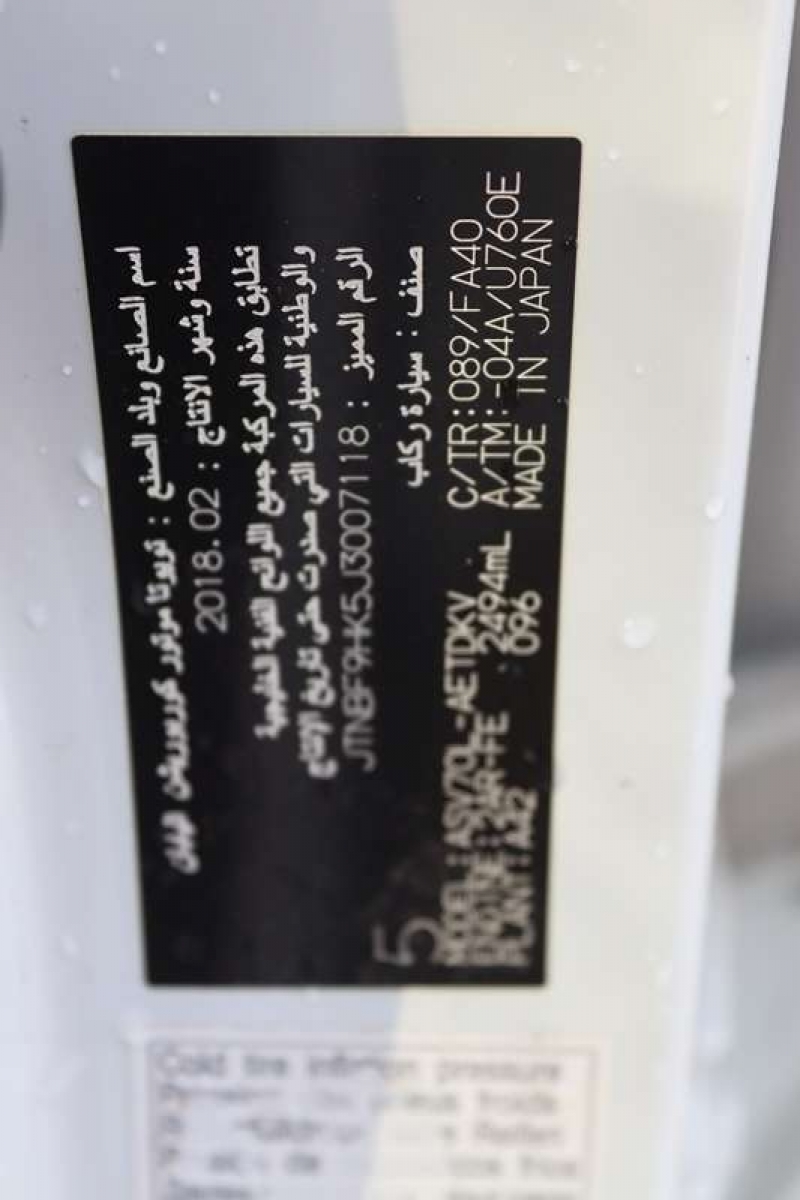 اسم الصانع وبلد الصنع : تويوتا موتور كوربوريشن اليابان
سنة وشهر الانتاج : 2018.02
تطابق هذه المركبة جميع اللوائح الفنية الخليجية
والوطنية للسيارات التي صدرت حتى تاريخ الانتاج
الرقم المميز : JTNBF9HK5J3007118
صنف : سيارة ركاب
5
MODEL : ASV70L-AETDKV C/TR:089/FA40
ENGINE : 2AR-FE 2494mL A/TM:-04A/U760E
PLANT : A42 096 MADE IN JAPAN
Cold tire inflation pressure
pneus froids
Reifen
de